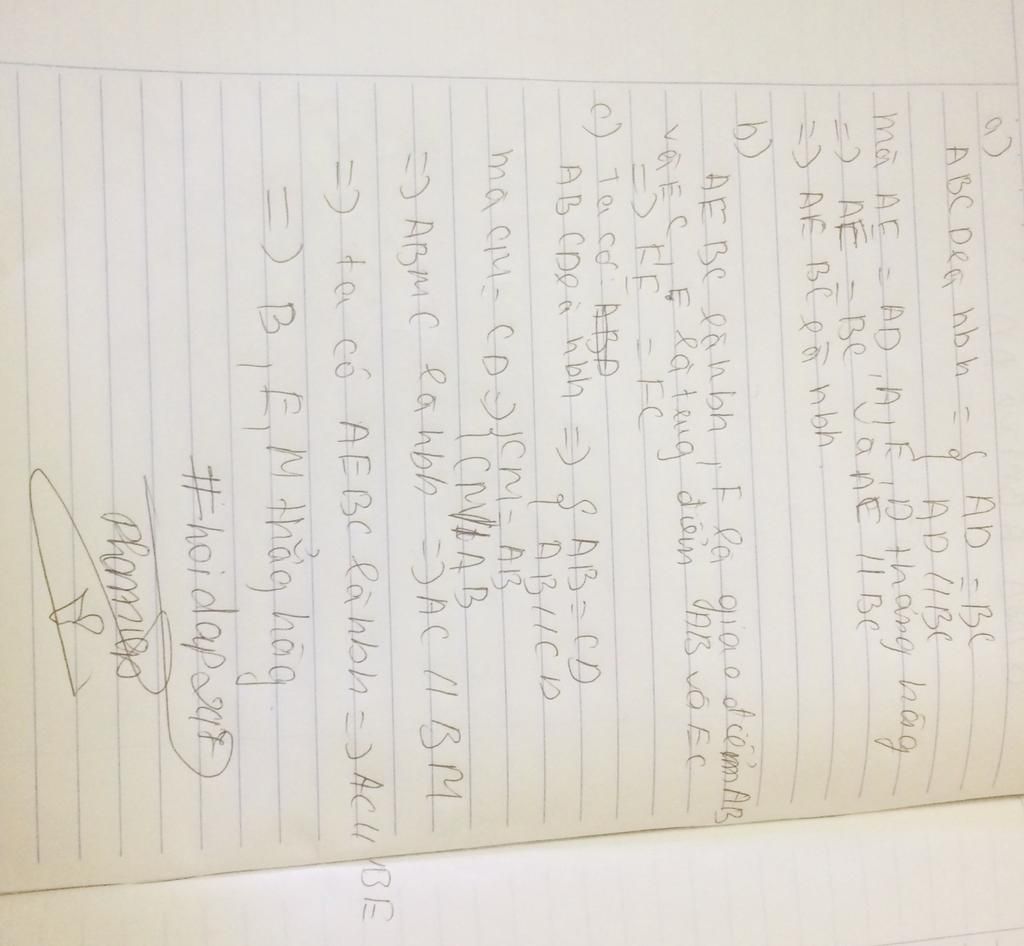 a)
ABCD là hbh = { AD = BC
AD // BC
mà AE = AD, A, E, D thẳng hàng
=> AE = BC và AE // BC
=> AE BC là hbh
b)
AEBC là hbh, F là giao điểm AB
và EC F là trung điểm AB và EC
=> EF = FC
c) Ta có:
ABCD là hbh => { AB = CD
AB // CD
mà CM = CD => { CM = AB
CM // AB
=> ABMC là hbh => AC // BM
=> ta có AEBC là hbh => AC // BE
=> B, E, M thẳg hàg
#hoidap247